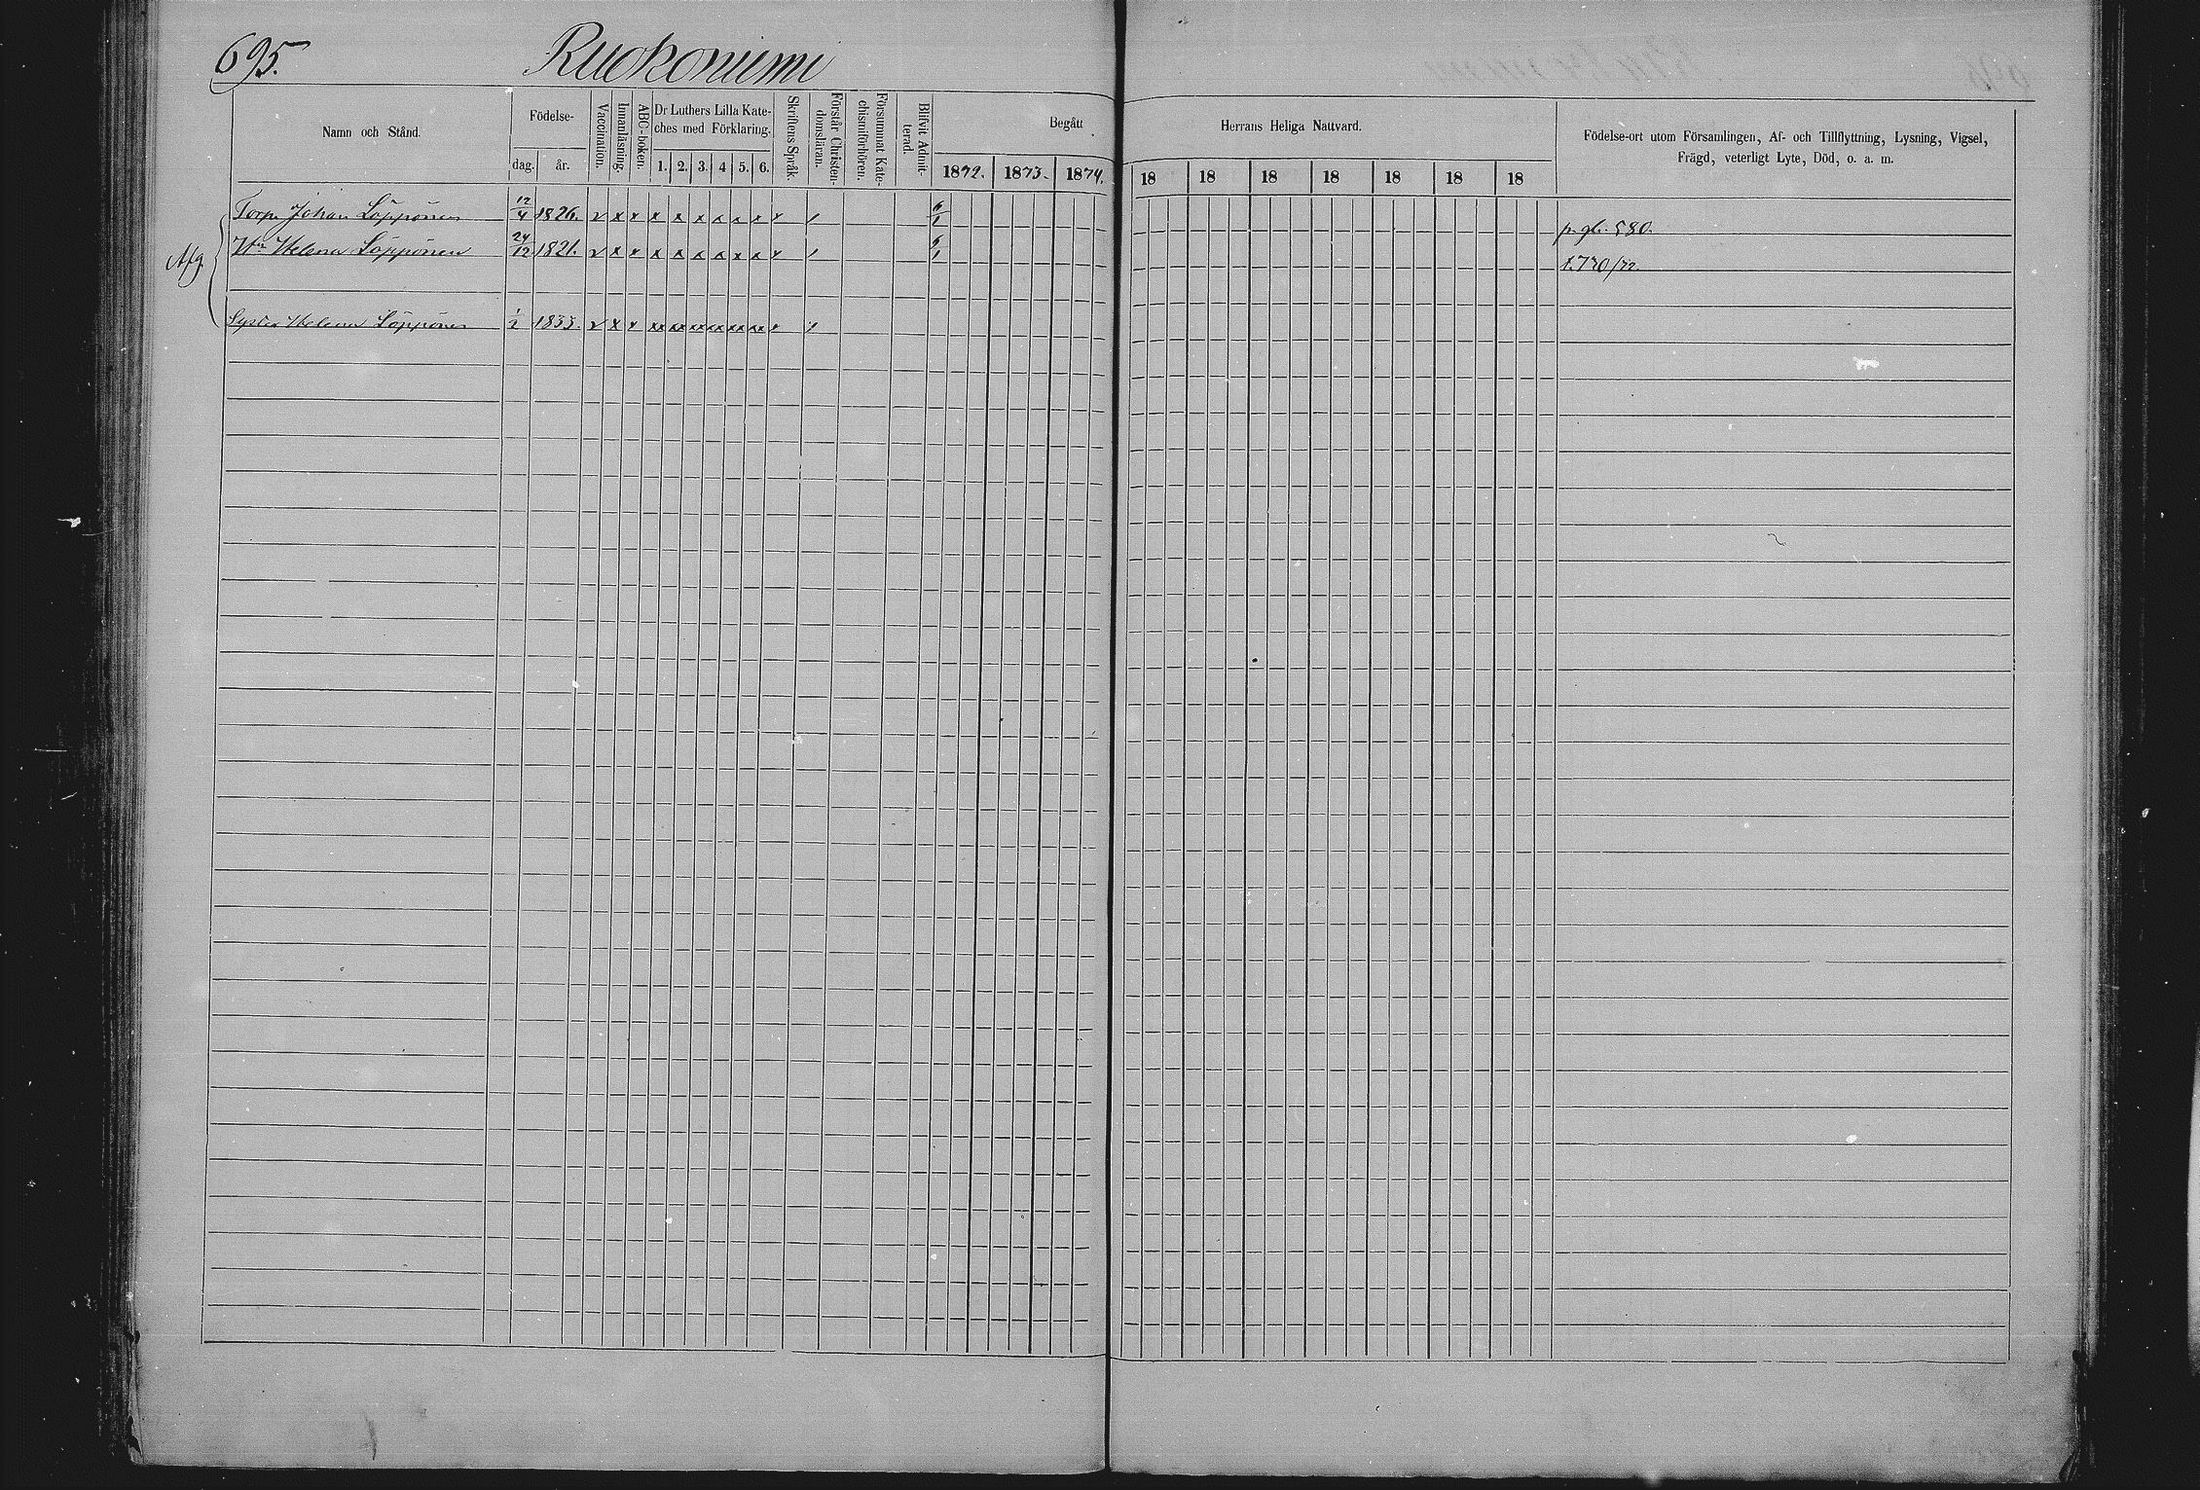 695.
Ruokoniemi
Namn och Stånd.
Födelse-
dag.
år.
Vaccination.
Innanläsning.
ABC-boken.
Dr Luthers Lilla Kate-
ches med Förklaring.
1. 2. 3. 4 5. 6.
Skriftens Språk.
Förstår Christen-
domsläran.
Försummat Kate-
chismiförhören.
Blifvit Admit-
terad.
Begått
1872. 1873. 1874.
Herrans Heliga Nattvard.
18 18 18 18 18 18 18
Födelse-ort utom Församlingen, Af- och Tillflyttning, Lysning, Vigsel,
Frägd, veterligt Lyte, Död, o. a. m.
Afg.
Torp. Johan Löppönen 12/4 1826. v x x x x x x x x x / 6/1 p. gl. 580.
Helena Löppönen 24/12 1821. v x x x x x x x x x / 6/1 t. 770/72.
Syster Helena Löppönen 1/2 1833. v x x xx xx xx xx xx xx x /